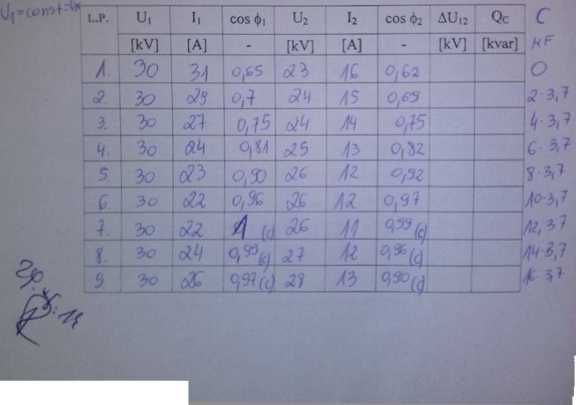 U₁=const=
L.P. U₁ I₁ cos ϕ₁ U₂ I₂ cos ϕ₂ ΔU₁₂ Q_C C
[kV] [A] - [kV] [A] - [kV] [kvar] μF
1. 30 31 0,65 23 16 0,62 0
2. 30 29 0,7 24 15 0,69 2·3,7
3. 30 27 0,75 24 14 0,75 4·3,7
4. 30 24 0,81 25 13 0,82 6·3,7
5. 30 23 0,90 26 12 0,92 8·3,7
6. 30 22 0,96 26 12 0,97 10·3,7
7. 30 22 1 (c) 26 11 0,99 (c) 12·3,7
8. 30 24 0,99 (c) 27 12 0,96 (c) 14·3,7
9. 30 26 0,97 (c) 28 13 0,90 (c) 16·3,7